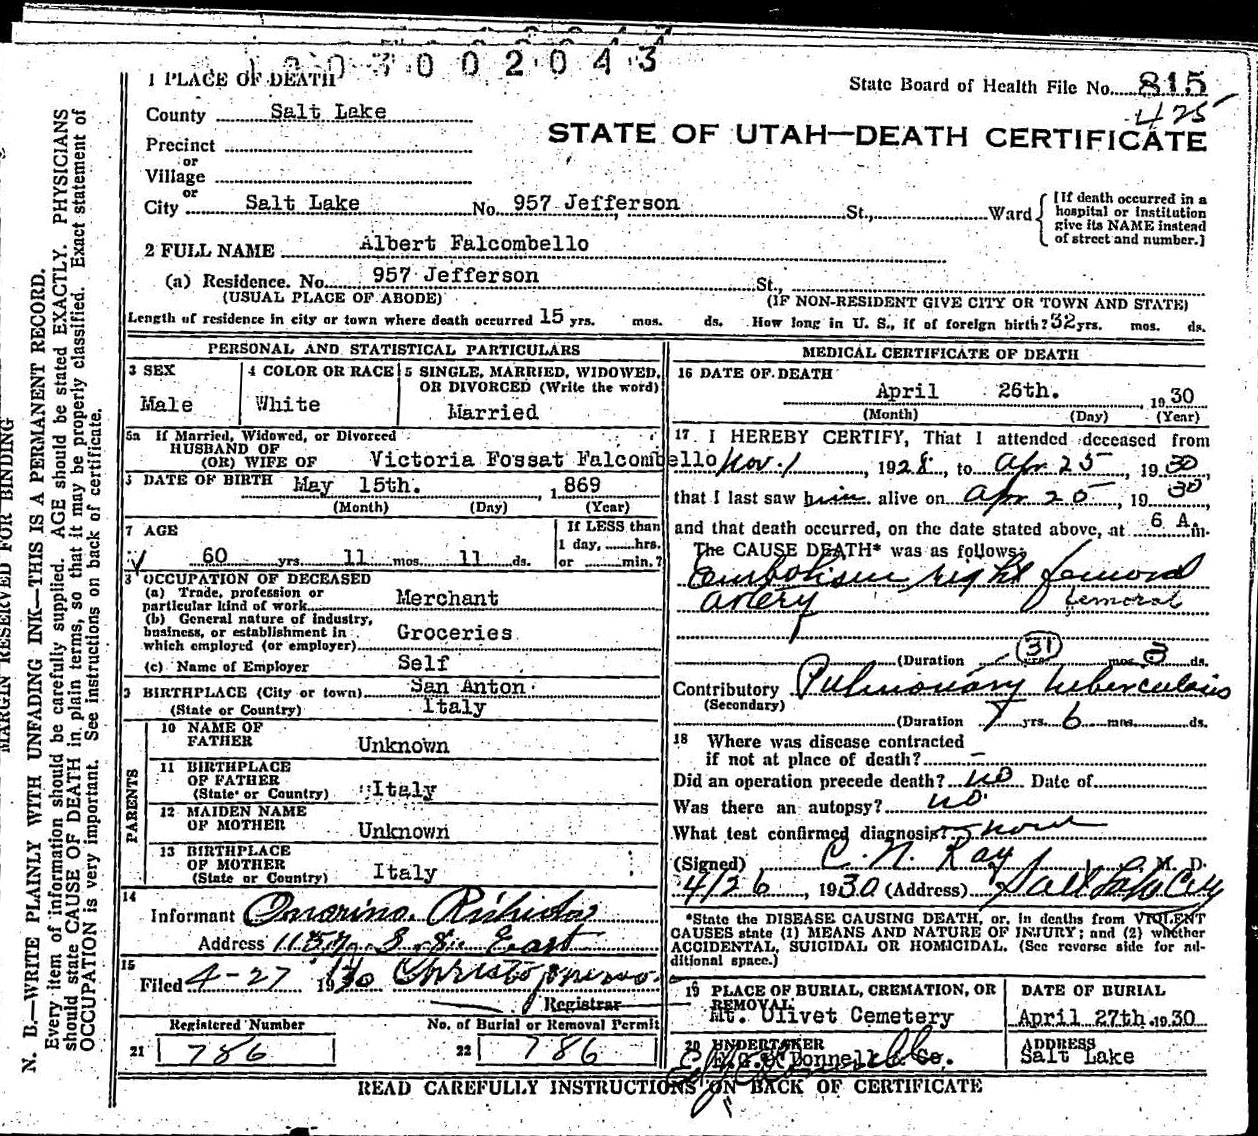 1 0 0 3 0 0 2 0 4 3
1 PLACE OF DEATH
State Board of Health File No. 815
425
County Salt Lake
STATE OF UTAH—DEATH CERTIFICATE
Precinct
or
Village
or
City Salt Lake No. 957 Jefferson, St., Ward
[If death occurred in a
hospital or institution
give its NAME instead
of street and number.]
2 FULL NAME Albert Falcombello
(a) Residence. No. 957 Jefferson St.,
(USUAL PLACE OF ABODE) (IF NON-RESIDENT GIVE CITY OR TOWN AND STATE)
Length of residence in city or town where death occurred 15 yrs. mos. ds. How long in U. S., if of foreign birth? 32 yrs. mos. ds.
PERSONAL AND STATISTICAL PARTICULARS
3 SEX
Male
4 COLOR OR RACE
White
5 SINGLE, MARRIED, WIDOWED,
OR DIVORCED (Write the word)
Married
5a If Married, Widowed, or Divorced
HUSBAND OF
(OR) WIFE OF Victoria Fossat Falcombello
DATE OF BIRTH May 15th. 1869
(Month) (Day) (Year)
7 AGE
60 yrs. 11 mos. 11 ds.
If LESS than
1 day, hrs.
or min.?
8 OCCUPATION OF DECEASED
(a) Trade, profession or
particular kind of work Merchant
(b) General nature of industry,
business, or establishment in
which employed (or employer) Groceries
(c) Name of Employer Self
9 BIRTHPLACE (City or town) San Anton
(State or Country) Italy
PARENTS
10 NAME OF
FATHER Unknown
11 BIRTHPLACE
OF FATHER
(State or Country) Italy
12 MAIDEN NAME
OF MOTHER Unknown
13 BIRTHPLACE
OF MOTHER
(State or Country) Italy
14
Informant
Address 1157 So. East
15
Filed 4-27 1930
Registrar
Registered Number
21 786
No. of Burial or Removal Permit
22 786
MEDICAL CERTIFICATE OF DEATH
16 DATE OF DEATH
April 26th. 1930
(Month) (Day) (Year)
17 I HEREBY CERTIFY, That I attended deceased from
Nov. 1, 1928, to Apr 25, 1930
that I last saw him alive on Apr 25, 1930
and that death occurred, on the date stated above, at 6 A. m.
The CAUSE DEATH* was as follows:
Embolism right femoral
artery femoral
(Duration 31 mos. 3 ds.
Contributory Pulmonary tuberculosis
(Secondary)
(Duration 1 yrs. 6 mos. ds.
18 Where was disease contracted
if not at place of death? -
Did an operation precede death? no Date of
Was there an autopsy? no.
What test confirmed diagnosis? none
(Signed) C. N. Ray, M. D.
4/26, 1930 (Address) Salt Lake City
*State the DISEASE CAUSING DEATH, or, in deaths from VIOLENT
CAUSES state (1) MEANS AND NATURE OF INJURY; and (2) whether
ACCIDENTAL, SUICIDAL OR HOMICIDAL. (See reverse side for ad-
ditional space.)
19 PLACE OF BURIAL, CREMATION, OR
REMOVAL
Mt. Olivet Cemetery
DATE OF BURIAL
April 27th. 1930
20 UNDERTAKER
O'Donnell & Co.
ADDRESS
Salt Lake
READ CAREFULLY INSTRUCTIONS ON BACK OF CERTIFICATE
MARGIN RESERVED FOR BINDING
N. B.—WRITE PLAINLY WITH UNFADING INK—THIS IS A PERMANENT RECORD.
Every item of information should be carefully supplied. AGE should be stated EXACTLY. PHYSICIANS
should state CAUSE OF DEATH in plain terms, so that it may be properly classified. Exact statement of
OCCUPATION is very important. See instructions on back of certificate.